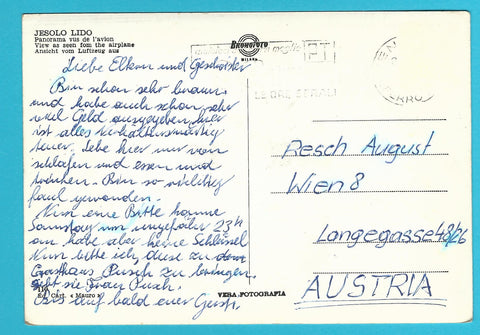 JESOLO LIDO
Panorama vus de l'avion
View as seen fom the airplane
Ansicht vom Luftzeug aus
BROMOFOTO
MILANO
Liebe Eltern und Geschwister
Bin schon sehr braun
und habe auch schon sehr
viel Geld ausgegeben, hier
ist alles verhältnismäßig
teuer. Lebe hier nur von
schlafen und essen und
trinken. Bin so richtig
faul geworden.
Nun eine Bitte komme
Samstag um ungefähr 23 h
an habe aber keine Schlüssel
Nun bitte ich, diese zu
Gasthaus Pusch zu bringen.
gebt sie Frau Pusch.
Bis auf bald euer
Ed. Cart. « Mauro »
VERA FOTOGRAFIA
PT
LE ORE SERALI
Resch August
Wien 8
Langegasse 48/26
AUSTRIA